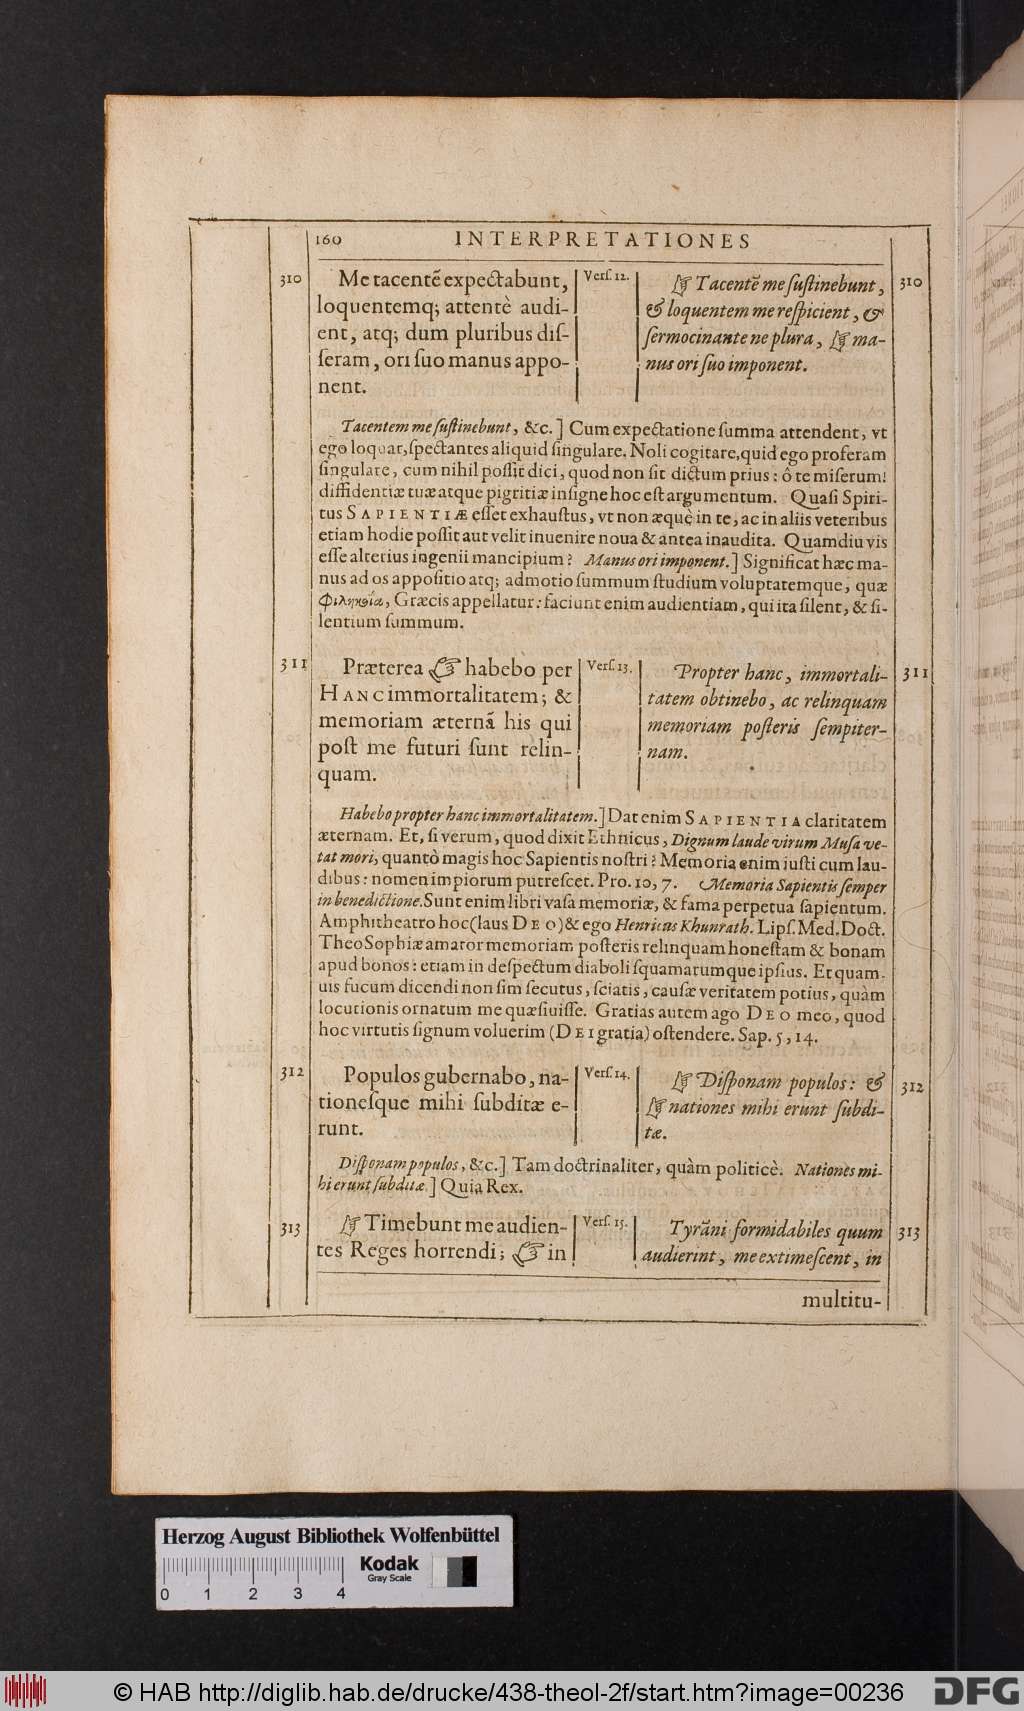 160 INTERPRETATIONES
310 Me tacentē expectabunt,
loquentemq; attentè audi-
ent, atq; dum pluribus dis-
seram, ori suo manus appo-
nent.
Vers. 12.
☞ Tacentē me sustinebunt, 310
& loquentem me respicient, &
sermocinante ne plura, ☞ ma-
nus ori suo imponent.
Tacentem me sustinebunt, &c.] Cum expectatione summa attendent, vt
ego loquar, spectantes aliquid singulare. Noli cogitare, quid ego proferam
singulare, cum nihil possit dici, quod non sit dictum prius: ô te miserum!
diffidentiæ tuæ atque pigritiæ insigne hoc est argumentum. Quasi Spiri-
tus SAPIENTIÆ esset exhaustus, vt non æquè in te, ac in aliis veteribus
etiam hodie possit aut velit inuenire noua & antea inaudita. Quamdiu vis
esse alterius ingenii mancipium? Manus ori imponent.] Significat hæc ma-
nus ad os appositio atq; admotio summum studium voluptatemque, quæ
Φιληκοΐα, Græcis appellatur: faciunt enim audientiam, qui ita silent, & si-
lentium summum.
311 Præterea ☞ habebo per
HANC immortalitatem; &
memoriam æternā his qui
post me futuri sunt relin-
quam.
Vers. 13.
Propter hanc, immortali- 311
tatem obtinebo, ac relinquam
memoriam posteris sempiter-
nam.
Habebo propter hanc immortalitatem.] Dat enim SAPIENTIA claritatem
æternam. Et, si verum, quod dixit Ethnicus, Dignum laude virum Musa ve-
tat mori, quantò magis hoc Sapientis nostri? Memoria enim iusti cum lau-
dibus: nomen impiorum putrescet. Pro. 10, 7. Memoria Sapientis semper
in benedictione. Sunt enim libri vasa memoriæ, & fama perpetua sapientum.
Amphitheatro hoc (laus DEO) & ego Henricus Khunrath. Lips. Med. Doct.
TheoSophiæ amator memoriam posteris relinquam honestam & bonam
apud bonos: etiam in despectum diaboli squamarumque ipsius. Et quam-
uis fucum dicendi non sim secutus, sciatis, causæ veritatem potius, quàm
locutionis ornatum me quæsiuisse. Gratias autem ago DEO meo, quod
hoc virtutis signum voluerim (DEI gratia) ostendere. Sap. 5, 14.
312 Populos gubernabo, na-
tionesque mihi subditæ e-
runt.
Vers. 14.
☞ Disponam populos: & 312
☞ nationes mihi erunt subdi-
tæ.
Disponam populos, &c.] Tam doctrinaliter, quàm politicè. Nationes mi-
hi erunt subditæ.] Quia Rex.
313 ☞ Timebunt me audien-
tes Reges horrendi; ☞ in
Vers. 15.
Tyrāni formidabiles quum 313
audierint, me extimescent, in
multitu-
Herzog August Bibliothek Wolfenbüttel
Kodak
Gray Scale
0 1 2 3 4
© HAB http://diglib.hab.de/drucke/438-theol-2f/start.htm?image=00236
DFG